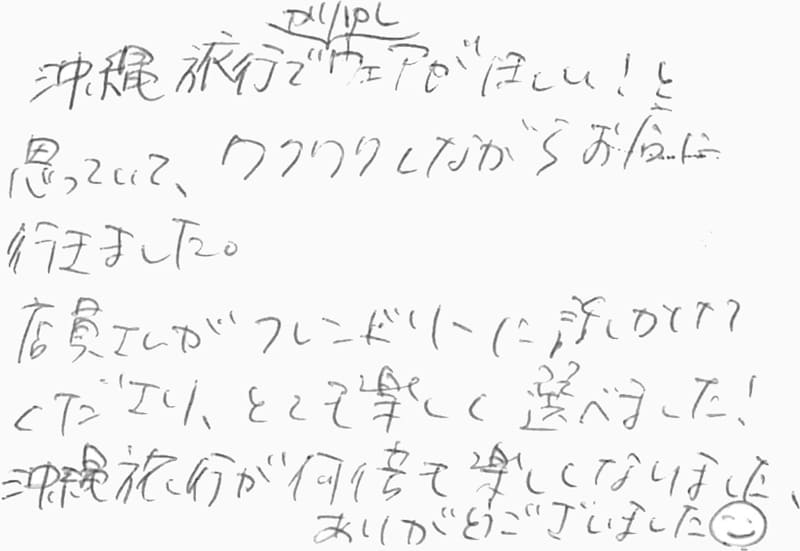 沖縄旅行でウェアがほしい！と
思っていて、ワクワクしながらお店に
行きました。
店員さんがフレンドリーに話しかけて
くださり、とても楽しく選べました！
沖縄旅行が何倍も楽しくなりました、
ありがとうございました